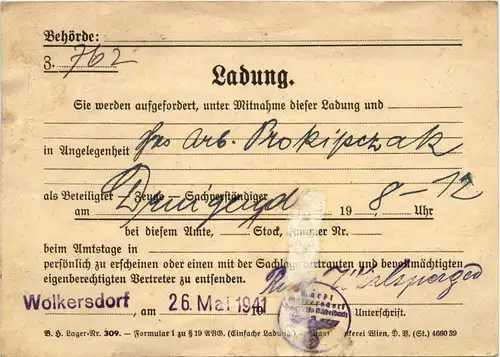 Behörde:
Z. 762
Ladung.
Sie werden aufgefordert, unter Mitnahme dieser Ladung und
in Angelegenheit Arb. Prokipczak
als Beteiligter Zeuge — Sachverständiger
am Dringend 19 8-12 Uhr
bei diesem Amte, Stock, Nr.
beim Amtstage in
persönlich zu erscheinen oder einen mit der Sachlage vertrauten und bevollmächtigten
eigenberechtigten Vertreter zu entsenden.
Wolkersdorf am 26. Mai 1941
Unterschrift.
B. H. Lager-Nr. 309. — Formular 1 zu § 19 AVG. (Einfache Ladung.) Wien, D. V. (St.) 4660 39